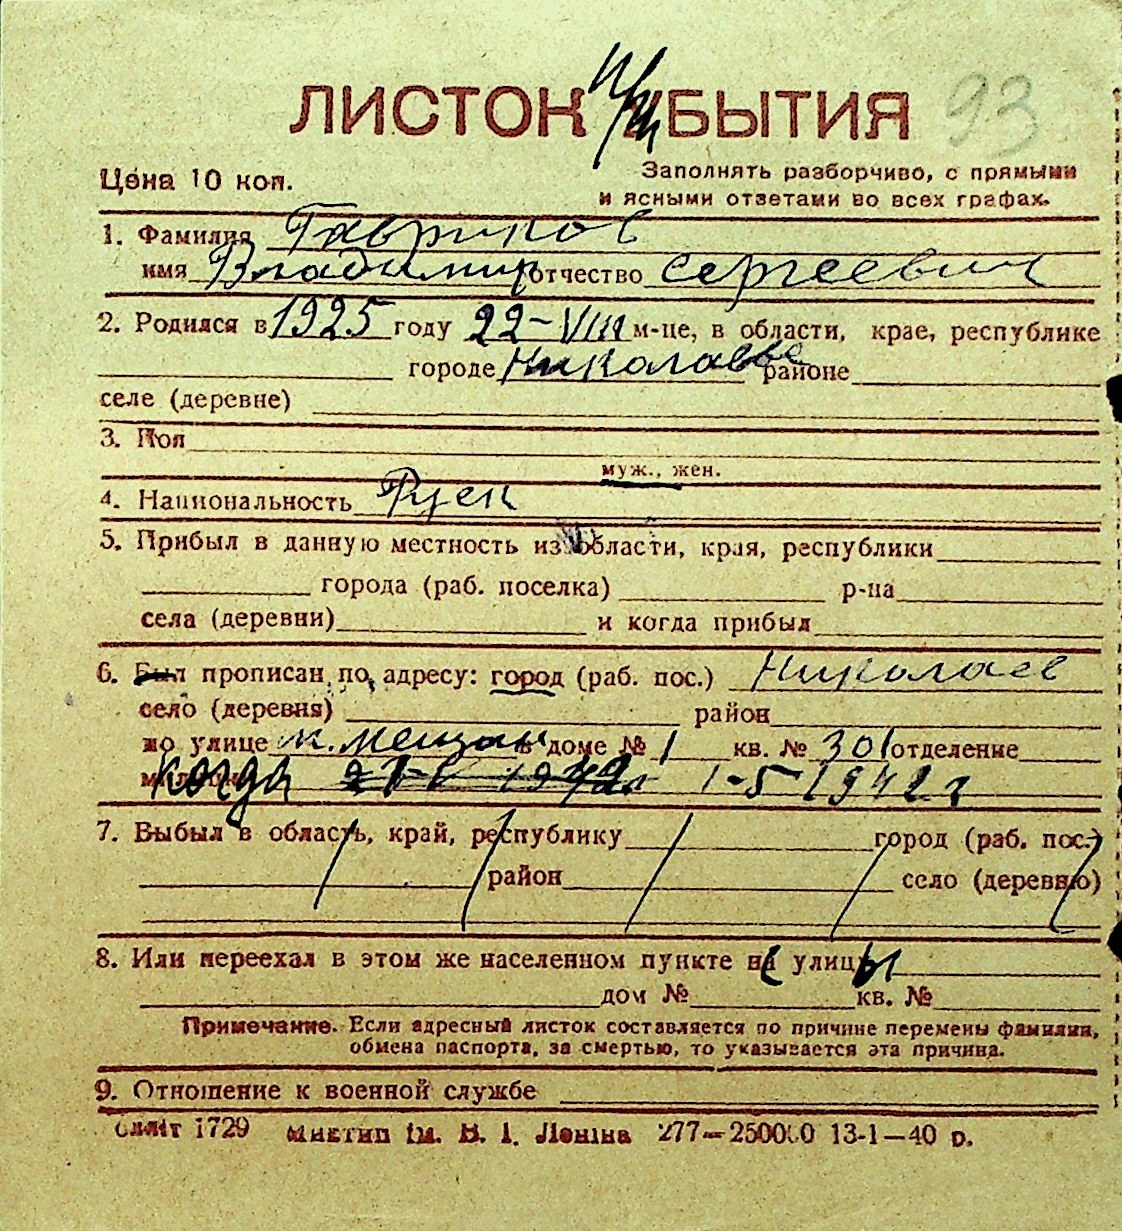 93
ЛИСТОК ПРИБЫТИЯ
Цена 10 коп.
Заполнять разборчиво, с прямыми
и ясными ответами во всех графах.
1. Фамилия Гавриков
имя Владимир отчество Сергеевич
2. Родился в 1925 году 22-VIII м-це, в области, крае, республике
городе Николаеве районе
селе (деревне)
3. Пол
муж., жен.
4. Национальность Руск
5. Прибыл в данную местность из области, края, республики
города (раб. поселка) р-на
села (деревни) и когда прибыл
6. Был прописан по адресу: город (раб. пос.) Николаев
село (деревня) район
по улице м. мещан в доме № 1 кв. № 301 отделение
когда 1-5 1942 г
7. Выбыл в область, край, республику город (раб. пос.)
район село (деревню)
8. Или переехал в этом же населенном пункте с улицы
дом № кв. №
Примечание. Если адресный листок составляется по причине перемены фамилии,
обмена паспорта, за смертью, то указывается эта причина.
9. Отношение к военной службе
1729 Миктип ім. В. І. Леніна 277—250000 13-1—40 р.